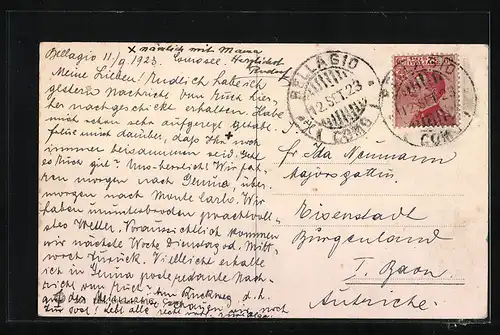 x nämlich mit Mama
Bellagio 11/9 1923. Herzlichst
Meine Lieben! Endlich habe ich
gestern Nachricht von Euch hier-
her nachgeschickt erhalten. Habe
mich schon sehr aufgeregt gehabt.
Freue mich darüber, daß Ihr + noch
immer beisammen seid. Geht
es Euch gut? Uns herrlich! Wir fah-
ren morgen nach Genua, über-
morgen nach Monte Carlo. Wir
haben ununterbrochen prachtvoll-
stes Wetter. Voraussichtlich kommen
wir nächste Woche Dienstag od. Mitt-
woch zurück. Vielleicht erhalte
ich in Genua poste restante Nach-
richt von Euch. Am Rückweg, d. h.
BELLAGIO
12.SET.23
COMO
Fr Ida Neumann
Majorsgattin
Eisenstadt
Burgenland
Autriche